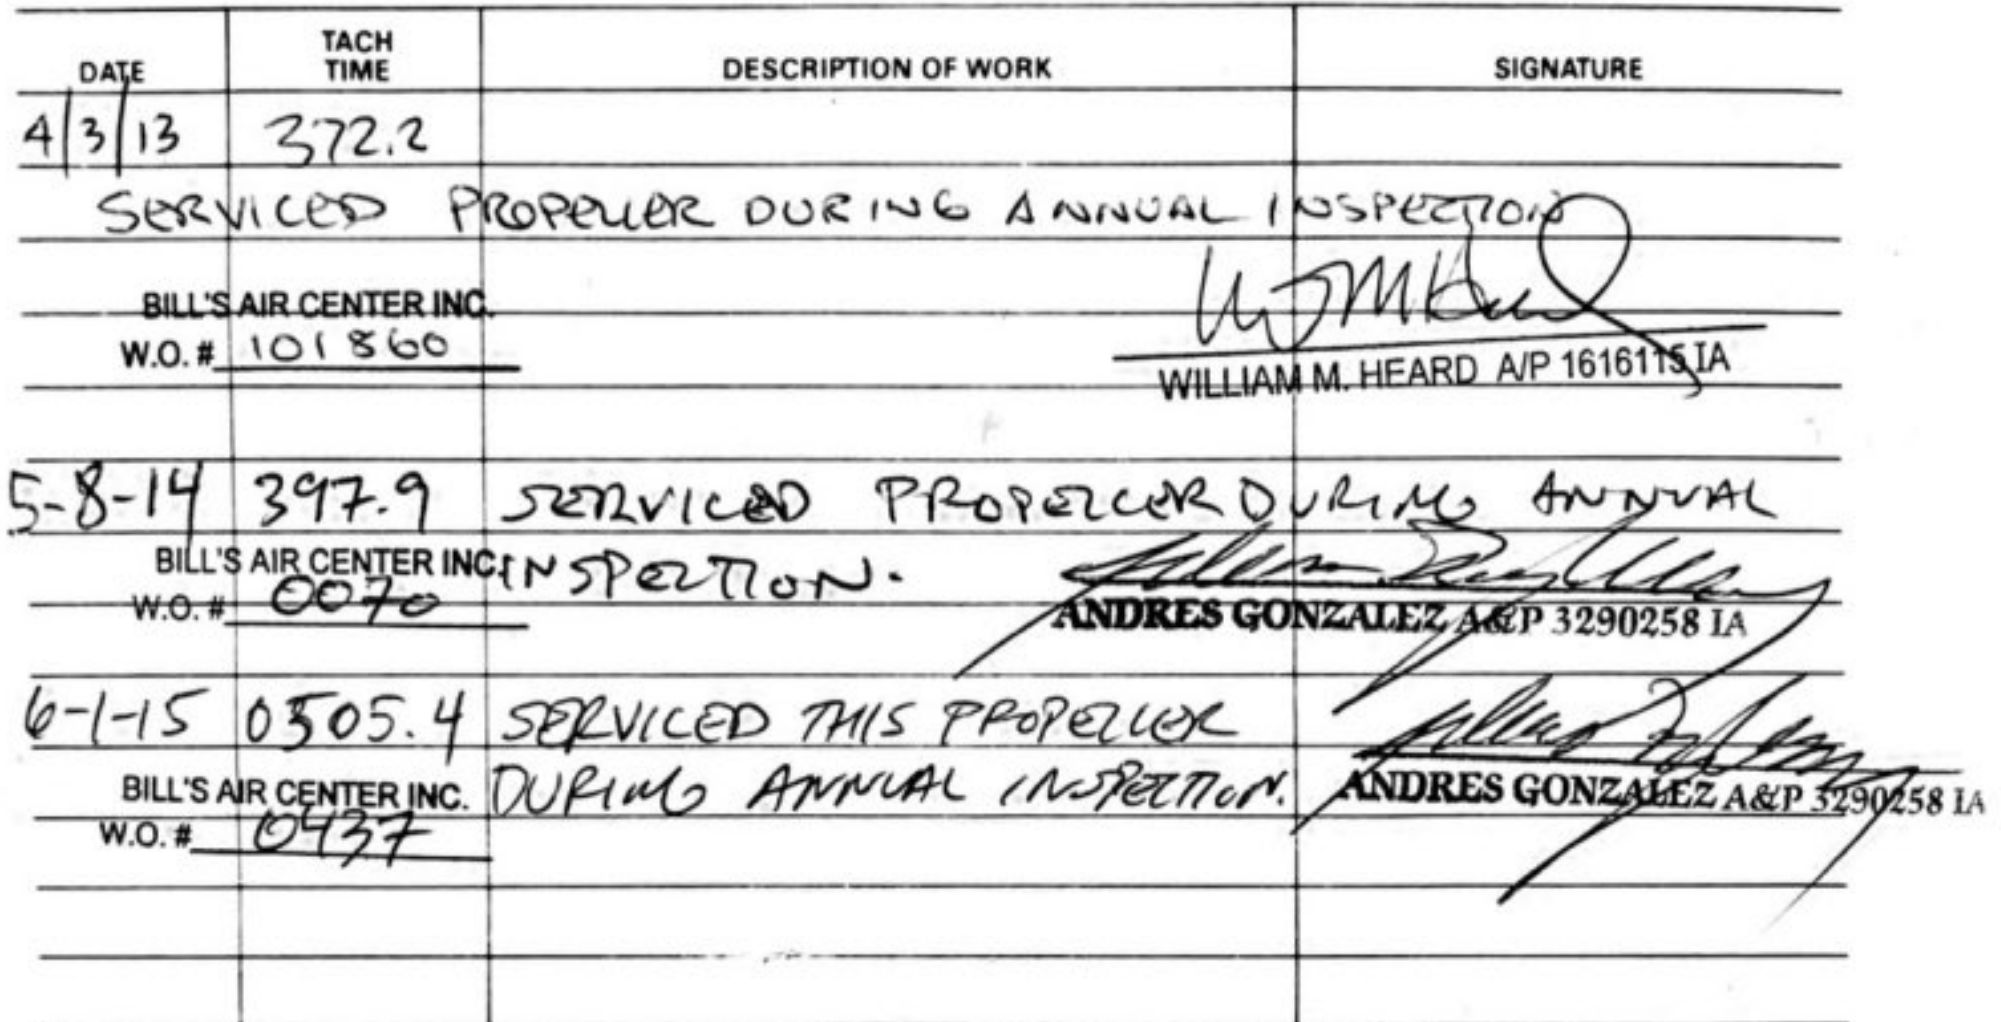 DATE TACH TIME DESCRIPTION OF WORK SIGNATURE
4/3/13 372.2
SERVICED PROPELLER DURING ANNUAL INSPECTION
BILL'S AIR CENTER INC.
W.O. # 101860
WILLIAM M. HEARD A/P 1616115 IA
5-8-14 397.9 SERVICED PROPELLER DURING ANNUAL
BILL'S AIR CENTER INC. INSPECTION.
W.O. # 0070
ANDRES GONZALEZ A&P 3290258 IA
6-1-15 0505.4 SERVICED THIS PROPELLER
BILL'S AIR CENTER INC. DURING ANNUAL INSPECTION.
ANDRES GONZALEZ A&P 3290258 IA
W.O. # 0437